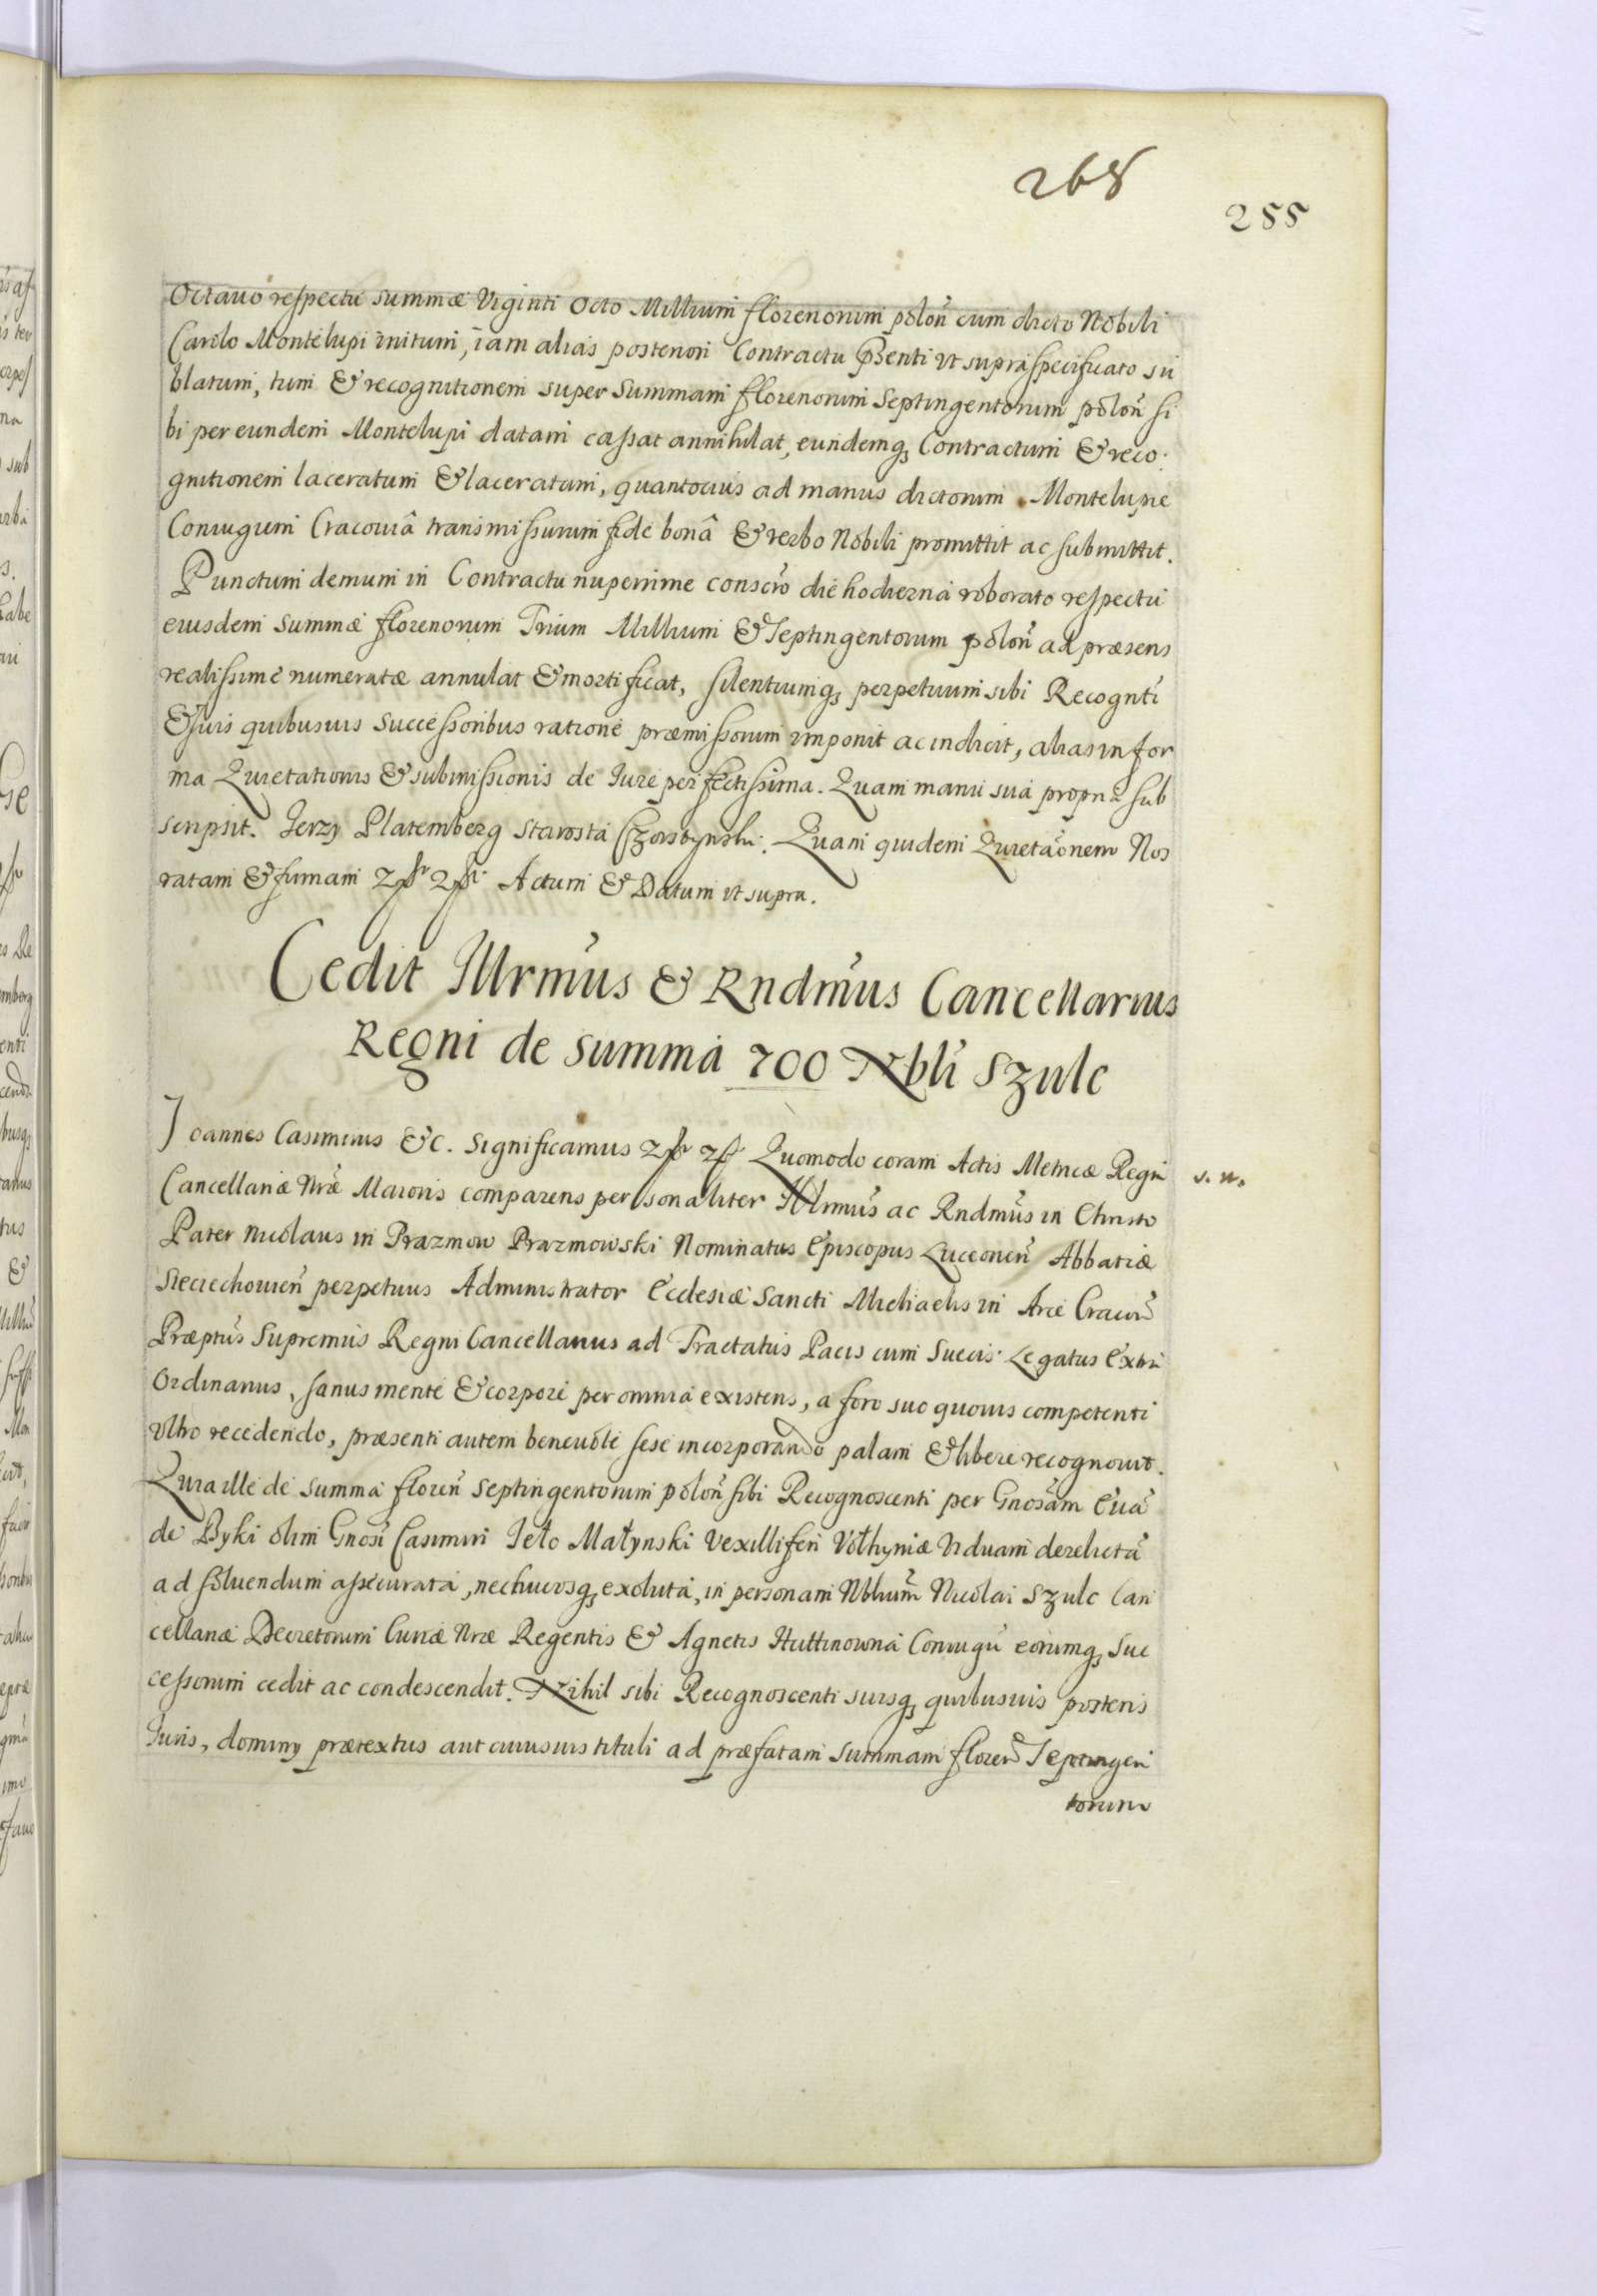 268
255
Octauo respectu summæ Viginti Octo Millium florenorum polon̄ cum dicto Nobili
Carolo Montelupi initum, iam alias posteriori Contractu pn̄senti ut supraspecificato su
blatum, tum & recognitionem super summam florenorum Septingentorum polon̄ si
bi per eundem Montelupi datam cassat annihilat, eundemq3 Contractum & reco
gnitionem laceratum & laceratam, quantocius ad manus dictorum Montelupie
Coniugum Cracouiâ transmissurum fide bonâ & verbo Nobili promittit ac submittit.
Punctum demum in Contractu nuperrime conscr̄o die hodierna roborato respectu
eiusdem summæ florenorum Trium Millium & Septingentorum polon̄ ad præsens
realissime numeratæ annulat & mortificat, silentiumq3 perpetuum sibi Recogn̄ti
& suis quibusuis successoribus ratione præmissorum imponit ac indicit, alias in for
ma Quietationis & submissionis de Iure perfectissima. Quam manu sua propria sub
scripsit. Jerzy Platemberg Starosta Czorstynski. Quam quidem Quietāonem Nos
ratam & firmam Actum & Datum ut supra.
Cedit Illrmus & Rndmus Cancellarius
Regni de summa 700 Nbli Szulc
Joannes Casimirus &c. Significamus Quomodo coram Actis Metricæ Regni
s. n.
Cancellariæ Nræ Maioris comparens personaliter Illrmus ac Rndmus in Christo
Pater Nicolaus in Prazmow Prazmowski Nominatus Episcopus Luceorien̄ Abbatiæ
Sieciechouien̄ perpetuus Administrator Ecclesiæ Sancti Michaelis in Arce Cracou̅
Præptus Supremus Regni Cancellarius ad Tractatus Pacis cum Suecis Legatus Extra
Ordinarius, sanus mente & corpore per omnia existens, a foro suo quouis competenti
vltro recedendo, præsenti autem beneuole sese incorporando palam & libere recognouit.
Quia ille de summa floren̄ Septingentorum polon̄ sibi Recognoscenti per Gnosam Eua
de Byki olim Gnosi Casimiri Jeło Małynski Vexilliferi Vołhyniæ Viduam derelicta
ad soluendum assecurata, nec hucusq3 exoluta, in personam Nblium Nicolai Szulc Can
cellariæ Decretorum Curiæ Nræ Regentis & Agnetis Huttinowna Coniugu eorumq3 Suc
cessorum cedit ac condescendit. Nihil sibi Recognoscenti suisq3 quibusuis posteris
Iuris, dominy prætextus aut cuiusuis tituli ad præfatam summam floren̄ Septingen
torum